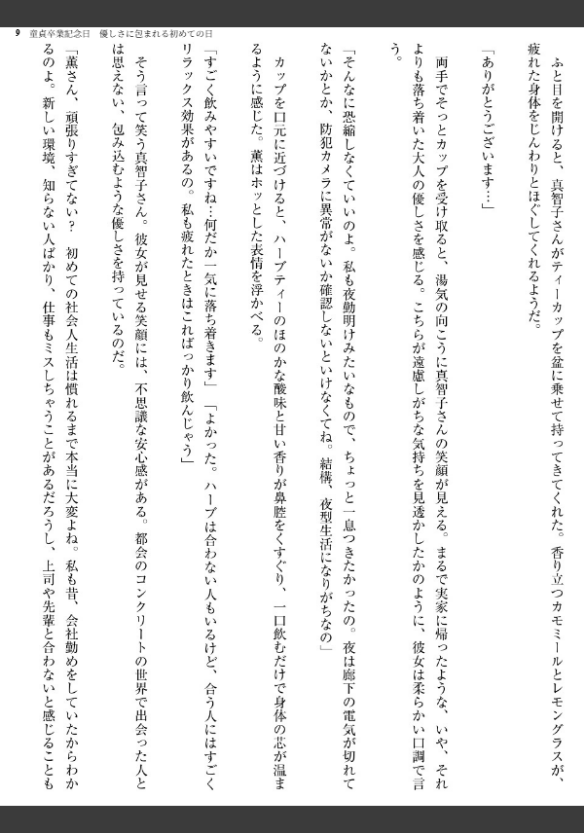 9　童貞卒業記念日　優しさに包まれる初めての日
ふと目を開けると、真智子さんがティーカップを盆に乗せて持ってきてくれた。香り立つカモミールとレモングラスが、
疲れた身体をじんわりとほぐしてくれるようだ。
「ありがとうございます…」
両手でそっとカップを受け取ると、湯気の向こうに真智子さんの笑顔が見える。まるで実家に帰ったような、いや、それ
よりも落ち着いた大人の優しさを感じる。こちらが遠慮しがちな気持ちを見透かしたかのように、彼女は柔らかい口調で言
う。
「そんなに恐縮しなくていいのよ。私も夜勤明けみたいなもので、ちょっと一息つきたかったの。夜は廊下の電気が切れて
ないかとか、防犯カメラに異常がないか確認しないといけなくてね。結構、夜型生活になりがちなの」
カップを口元に近づけると、ハーブティーのほのかな酸味と甘い香りが鼻腔をくすぐり、一口飲むだけで身体の芯が温ま
るように感じた。薫はホッとした表情を浮かべる。
「すごく飲みやすいですね…何だか一気に落ち着きます」「よかった。ハーブは合わない人もいるけど、合う人にはすごく
リラックス効果があるの。私も疲れたときはこればっかり飲んじゃう」
そう言って笑う真智子さん。彼女が見せる笑顔には、不思議な安心感がある。都会のコンクリートの世界で出会った人と
は思えない、包み込むような優しさを持っているのだ。
「薫さん、頑張りすぎてない？　初めての社会人生活は慣れるまで本当に大変よね。私も昔、会社勤めをしていたからわか
るのよ。新しい環境、知らない人ばかり、仕事もミスしちゃうことがあるだろうし、上司や先輩と合わないと感じることも